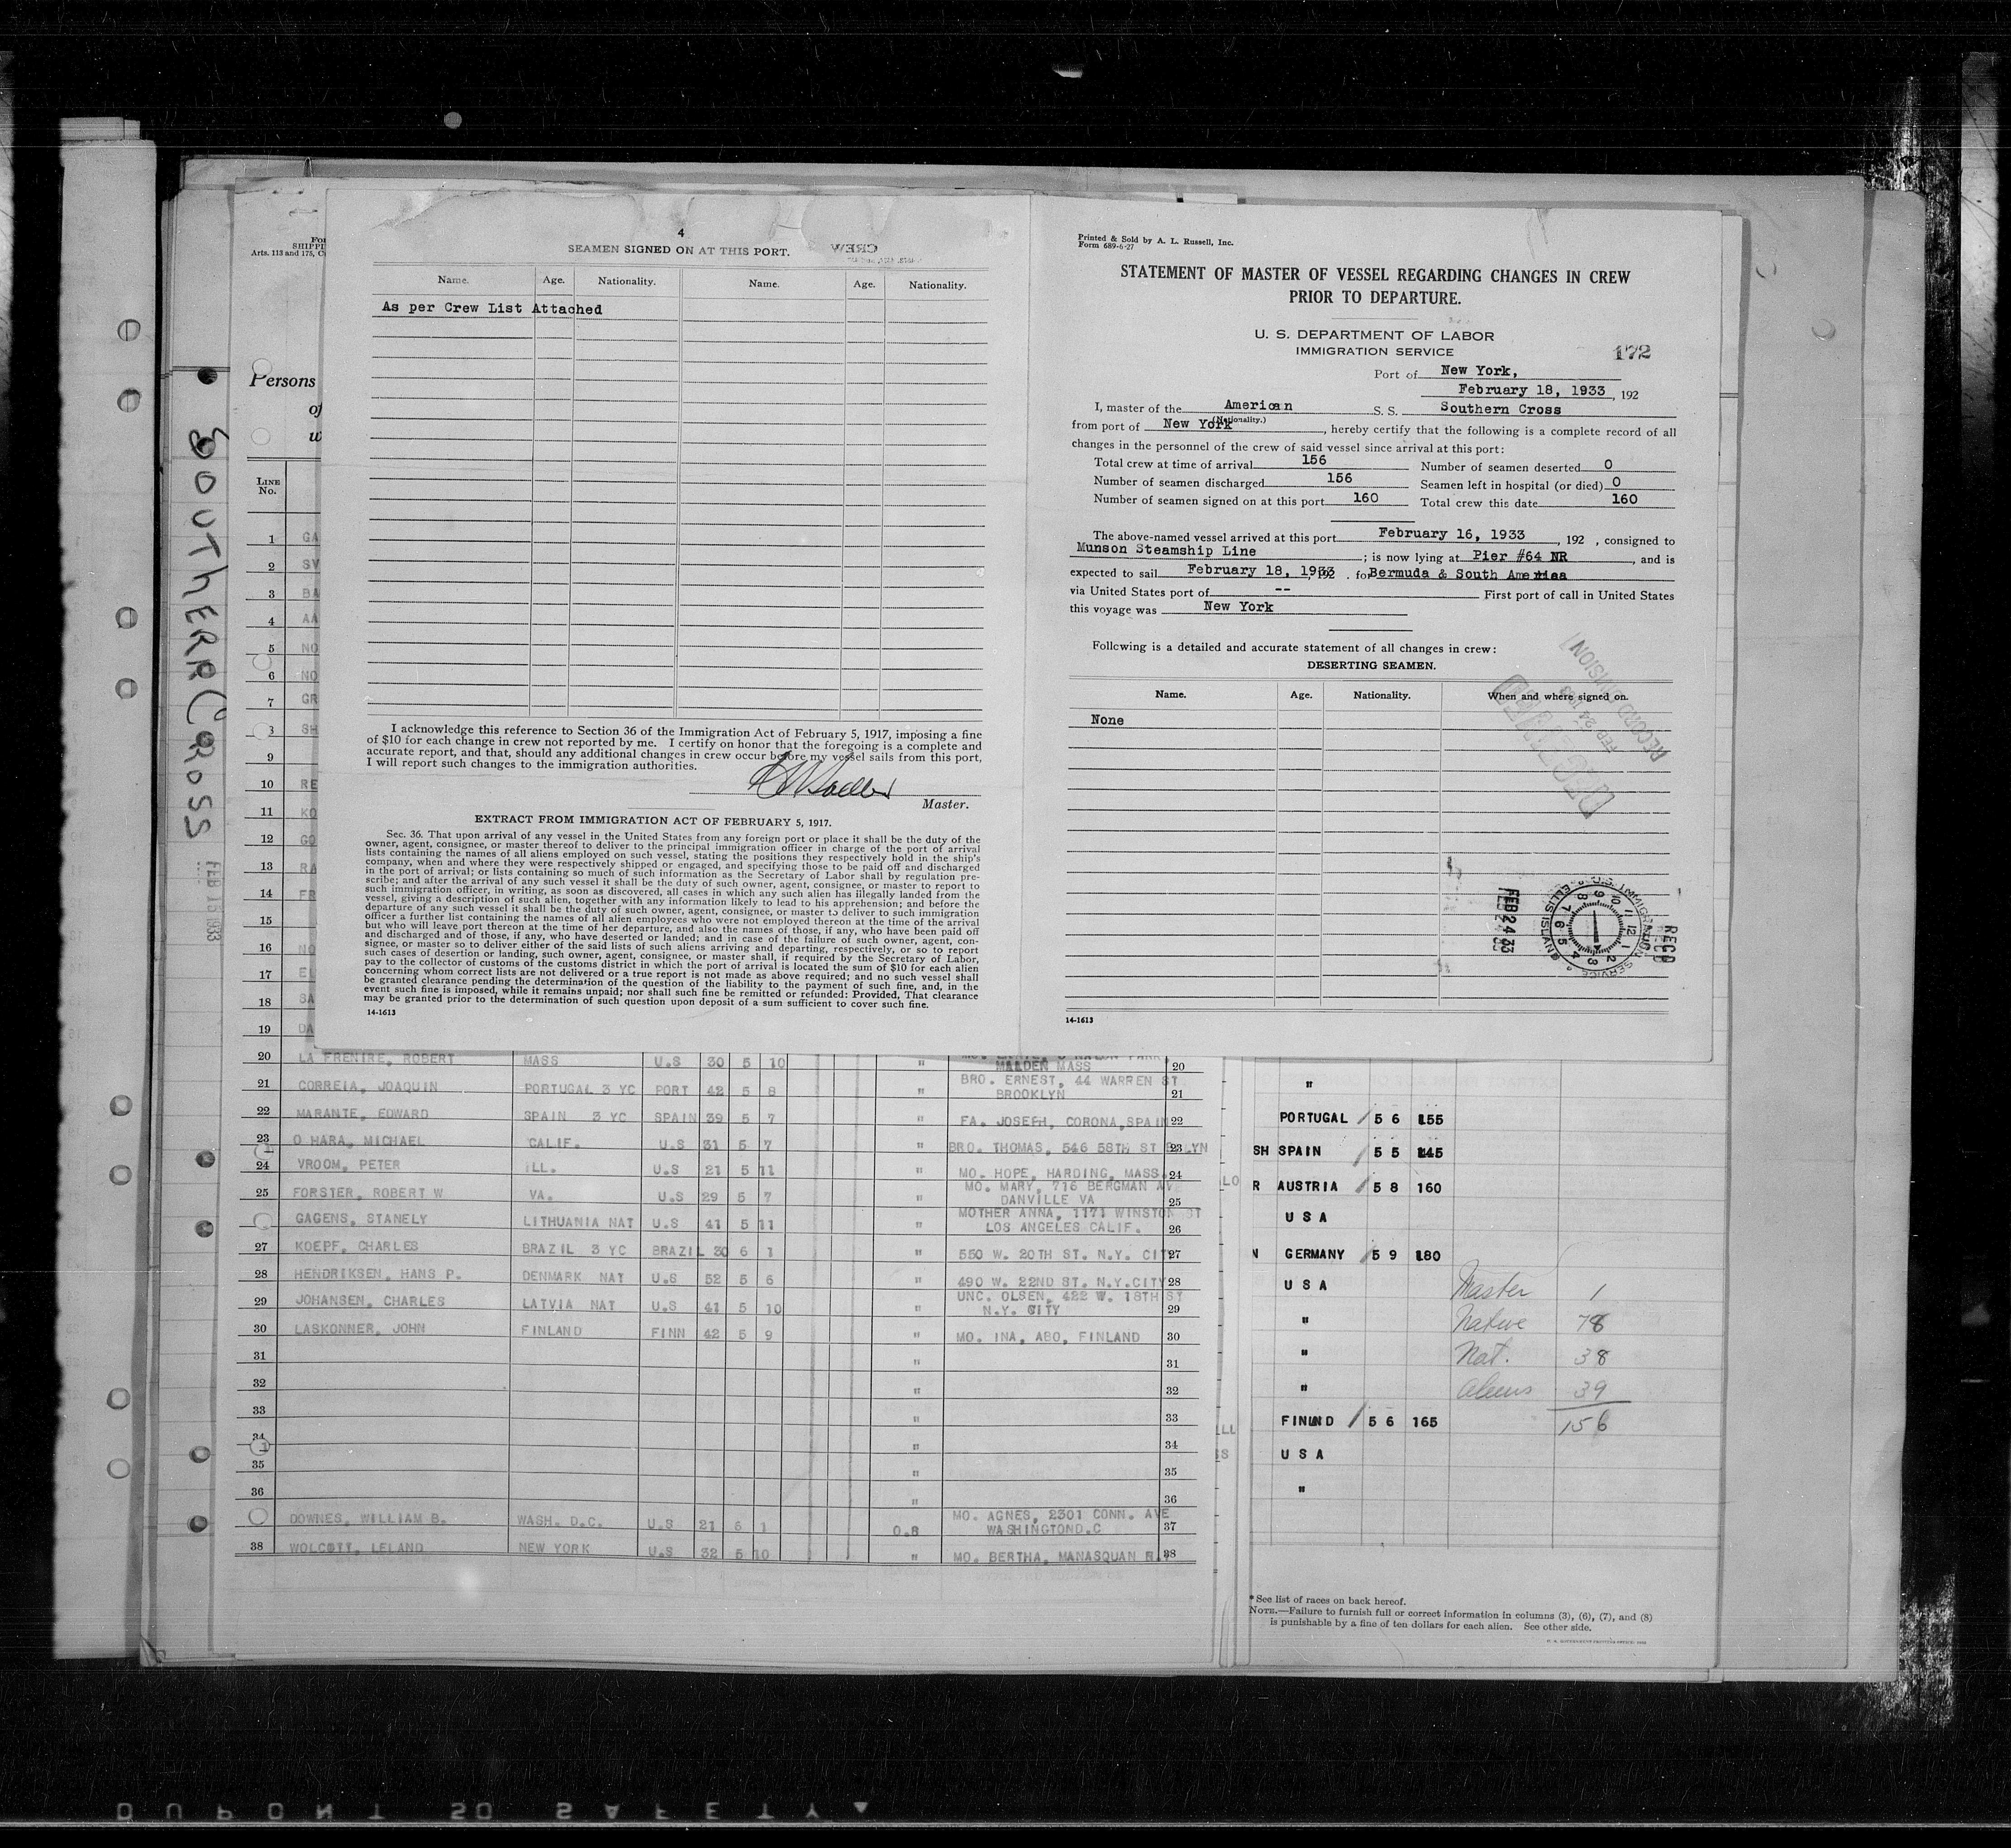 4
SEAMEN SIGNED ON AT THIS PORT.
CREW
Name. Age. Nationality. Name. Age. Nationality.
As per Crew List Attached
I acknowledge this reference to Section 36 of the Immigration Act of February 5, 1917, imposing a fine
of $10 for each change in crew not reported by me. I certify on honor that the foregoing is a complete and
accurate report, and that, should any additional changes in crew occur before my vessel sails from this port,
I will report such changes to the immigration authorities.
Master.
EXTRACT FROM IMMIGRATION ACT OF FEBRUARY 5, 1917.
Sec. 36. That upon arrival of any vessel in the United States from any foreign port or place it shall be the duty of the
owner, agent, consignee, or master thereof to deliver to the principal immigration officer in charge of the port of arrival
lists containing the names of all aliens employed on such vessel, stating the positions they respectively hold in the ship's
company, when and where they were respectively shipped or engaged, and specifying those to be paid off and discharged
in the port of arrival; or lists containing so much of such information as the Secretary of Labor shall by regulation pre-
scribe; and after the arrival of any such vessel it shall be the duty of such owner, agent, consignee, or master to report to
such immigration officer, in writing, as soon as discovered, all cases in which any such alien has illegally landed from the
vessel, giving a description of such alien, together with any information likely to lead to his apprehension; and before the
departure of any such vessel it shall be the duty of such owner, agent, consignee, or master to deliver to such immigration
officer a further list containing the names of all alien employees who were not employed thereon at the time of the arrival
but who will leave port thereon at the time of her departure, and also the names of those, if any, who have been paid off
and discharged and of those, if any, who have deserted or landed; and in case of the failure of such owner, agent, con-
signee, or master so to deliver either of the said lists of such aliens arriving and departing, respectively, or so to report
such cases of desertion or landing, such owner, agent, consignee, or master shall, if required by the Secretary of Labor,
pay to the collector of customs of the customs district in which the port of arrival is located the sum of $10 for each alien
concerning whom correct lists are not delivered or a true report is not made as above required; and no such vessel shall
be granted clearance pending the determination of the question of the liability to the payment of such fine, and, in the
event such fine is imposed, while it remains unpaid; nor shall such fine be remitted or refunded: Provided, That clearance
may be granted prior to the determination of such question upon deposit of a sum sufficient to cover such fine.
14-1613
Printed & Sold by A. L. Russell, Inc.
Form 689-6-27
STATEMENT OF MASTER OF VESSEL REGARDING CHANGES IN CREW
PRIOR TO DEPARTURE.
U. S. DEPARTMENT OF LABOR
IMMIGRATION SERVICE
172
Port of New York,
February 18, 1933, 192
I, master of the American S. S. Southern Cross
(Nationality.)
from port of New York, hereby certify that the following is a complete record of all
changes in the personnel of the crew of said vessel since arrival at this port:
Total crew at time of arrival 156 Number of seamen deserted 0
Number of seamen discharged 156 Seamen left in hospital (or died) 0
Number of seamen signed on at this port 160 Total crew this date 160
The above-named vessel arrived at this port February 16, 1933, 192 , consigned to
Munson Steamship Line ; is now lying at Pier #64 NR, and is
expected to sail February 18, 1933, 192 . for Bermuda & South America
via United States port of -- First port of call in United States
this voyage was New York
Following is a detailed and accurate statement of all changes in crew:
DESERTING SEAMEN.
Name. Age. Nationality. When and where signed on.
None
RECORD DIVISION
RECEIVED
REC'D
FEB 24 33
U.S. IMMIGRATION SERVICE
ELLIS ISLAND
14-1613
SOUTHERN CROSS
FEB 15 1933
SHIPPI
Arts. 113 and 175, C
Persons
of
w
LINE
No.
1 GA
2 SV
3 BA
4 AA
5 NO
6 NO
7 GR
8 SH
9
10 RE
11 KO
12 GO
13 RA
14 FR
15
16 NO
17 EL
18 SA
19 DA
20 LA FRENIRE, ROBERT MASS U.S 30 5 10 " MALDEN MASS 20
21 CORREIA, JOAQUIN PORTUGAL 3 YC PORT 42 5 8 " BRO. ERNEST, 44 WARREN ST
BROOKLYN 21
22 MARANTE, EDWARD SPAIN 3 YC SPAIN 39 5 7 " FA. JOSEPH, CORONA, SPAIN 22
23 O HARA, MICHAEL CALIF. U.S 31 5 7 " BRO. THOMAS, 546 58TH ST BKLYN 23
24 VROOM, PETER ILL. U.S 21 5 11 " MO. HOPE, HARDING, MASS. 24
25 FORSTER, ROBERT W VA. U.S 29 5 7 " MO. MARY, 716 BERGMAN AV
DANVILLE VA 25
GAGENS, STANELY LITHUANIA NAT U.S 41 5 11 " MOTHER ANNA, 1171 WINSTON ST
LOS ANGELES CALIF. 26
27 KOEPF, CHARLES BRAZIL 3 YC BRAZIL 30 6 1 " 550 W. 20TH ST. N.Y. CITY 27
28 HENDRIKSEN, HANS P. DENMARK NAT U.S 52 5 6 " 490 W. 22ND ST. N.Y.CITY 28
29 JOHANSEN, CHARLES LATVIA NAT U.S 41 5 10 " UNC. OLSEN, 422 W. 18TH ST
N.Y. CITY 29
30 LASKONNER, JOHN FINLAND FINN 42 5 9 " MO. INA, ABO, FINLAND 30
31 " 31
32 " 32
33 " 33
34 " 34
35 " 35
36 " 36
DOWNES, WILLIAM B. WASH. D.C. U.S 21 6 1 0.8 MO. AGNES, 2301 CONN. AVE
WASHINGTON D.C 37
38 WOLCOTT, LELAND NEW YORK U.S 32 5 10 " MO. BERTHA, MANASQUAN 38
"
PORTUGAL 5 6 155
SH SPAIN 5 5 145
R AUSTRIA 5 8 160
U S A
N GERMANY 5 9 180
U S A Master 1
" Native 78
" Nat. 38
" Aliens 39
FINLND 5 6 165 156
U S A
"
*See list of races on back hereof.
NOTE.—Failure to furnish full or correct information in columns (3), (6), (7), and (8)
is punishable by a fine of ten dollars for each alien. See other side.
DUPONT 50 SAFETY